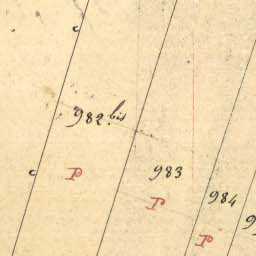 c
982 bis
c
P
983
P
984
P